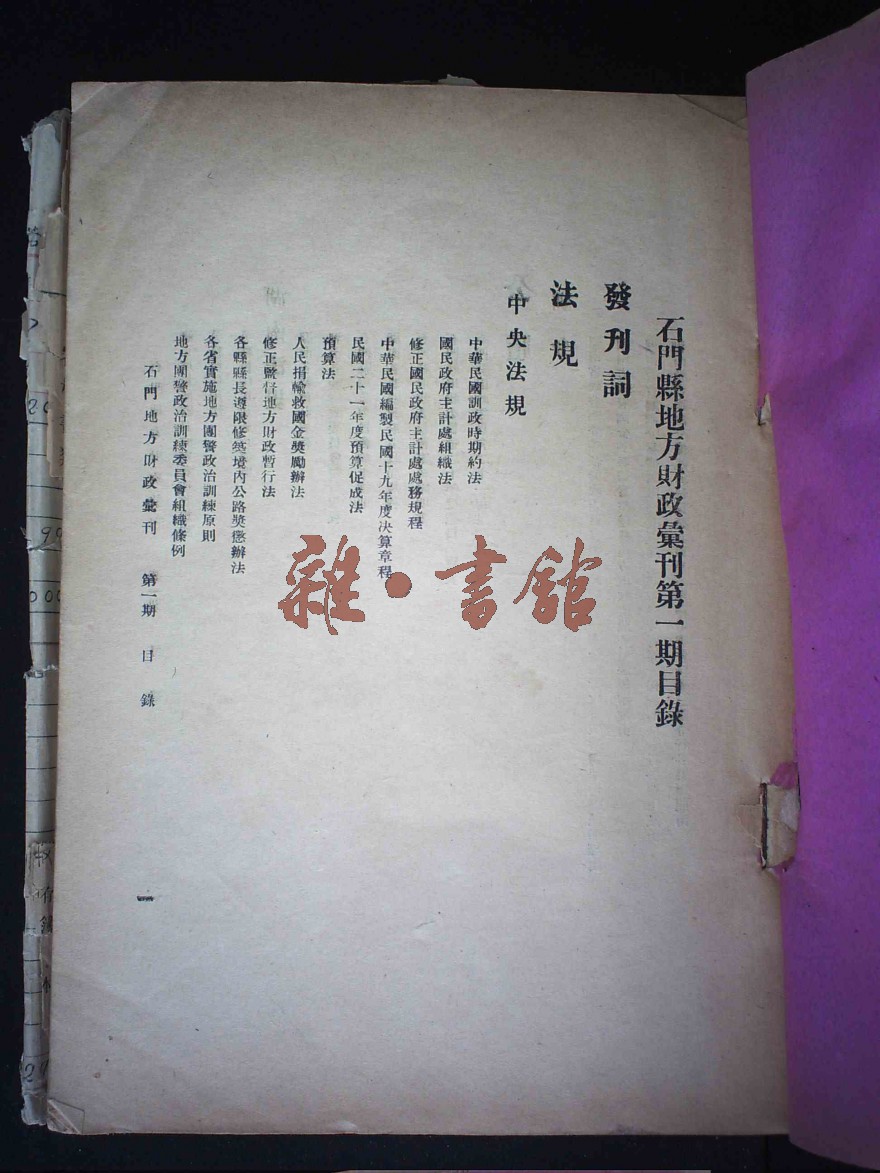 石門縣地方財政彙刊第一期目錄
發刊詞
法規
中央法規
中華民國訓政時期約法
國民政府主計處組織法
修正國民政府主計處處務規程
中華民國編製民國十九年度决算章程
民國二十一年度預算促成法
預算法
人民捐輸救國金奬勵辦法
修正監督地方財政暫行法
各縣縣長遵限修築境內公路奬懲辦法
各省實施地方團警政治訓練原則
地方團警政治訓練委員會組織條例
石門地方財政彙刊 第一期 目錄
一
雜·書館